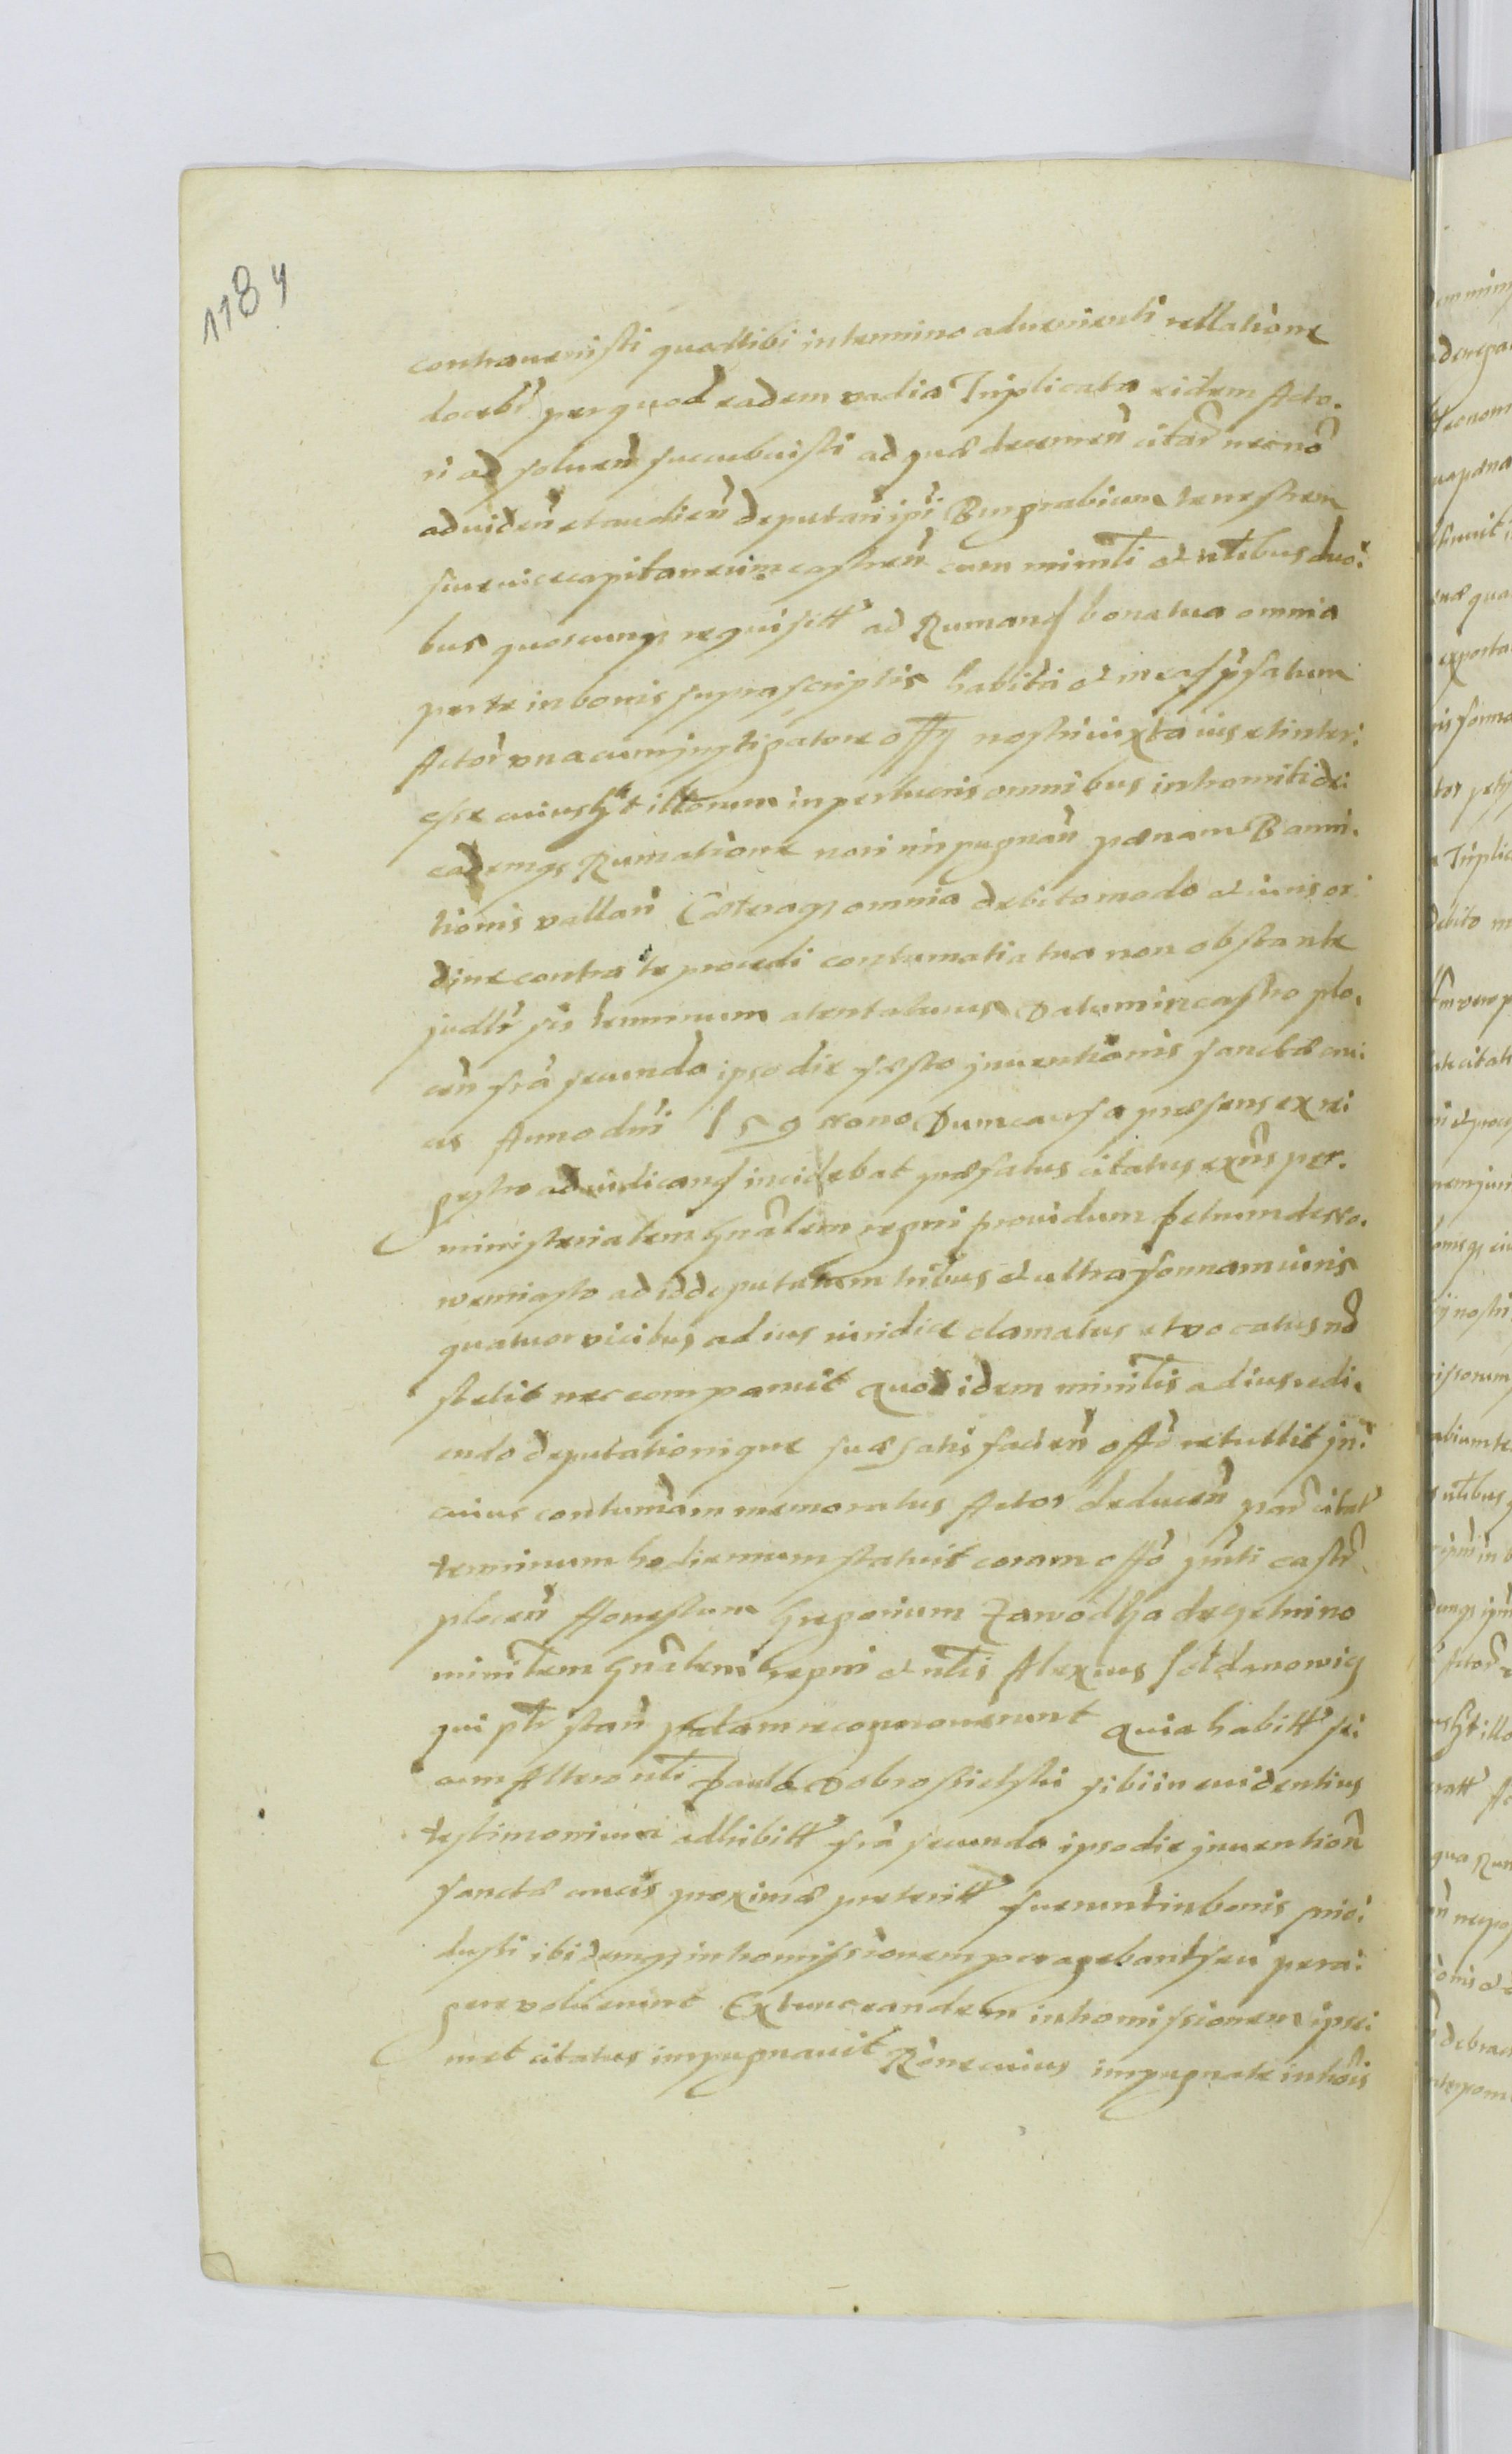 1184
contravenisti quod tibi in termino advenienti rellatione
docebr per quod eadem vadia Triplicata eidem Acto.
ri ad solven succubuisti ad quæ decernen citar necno
ad viden et audien deputari ipi Burgrabium terrestrem
sive vicecapitaneum castren cum minrli et nlibus duo:
bus quoscunq requisitt ad Rumand bona tua omnia
per te in bonis suprascriptis habita et in eas pfatum
Actor una cum jnstigatore offy nostri iuxta ius et inter:
esse cuiuslt illorum in perlucris omnibus intromitti de:
eademq Rumatione non impugnan pænam Banni.
tionis vallari Cæteraq omnia debito modo et iuris or
dine contra te procedi contumatia tua non obstante
judlr sis terminum attentaturus Datum in castro plo.
cen fria secunda ipso die festo jnventionis sanctæ cru:
cis Anno dni 159 nono Dum causa præsens ex re:
gestro ad iudicand incidebat præfatus citatus exns per.
ministerialem Gnalem regni providum Petrum de No.
wemiasto ad id deputatum tribus et ultra formam iuris
quatuor vicibus ad ius iuridice clamatus et vocatus no
stetit nec comparuit Quod idem minrlis ad ius redi.
endo deputationique suæ satisfacien offo retullit jn
cuius contumam memoratus Actor deducen par citat
terminum hodiernum statuit coram offo pnti castr
plocen Honestum Gregorium Zawodka de Gelnino
minrlem Gnalem regni et nlis Alexius Soldanowig
qui plr stan palam recognoverunt Quia habitt se:
cum Altero nli Paulo Dobrosielski sibi in evidentius
testimonium adhibitt fria secunda ipso die jnvention
sanctæ crucis proximæ preteritt fuerunt in bonis
dusti ibidemq intromissionem peragebant seu pera:
gere voluerunt Extunc eandem intromissionem ipse:
met citatus impugnavit Rone cuius impugnate introis